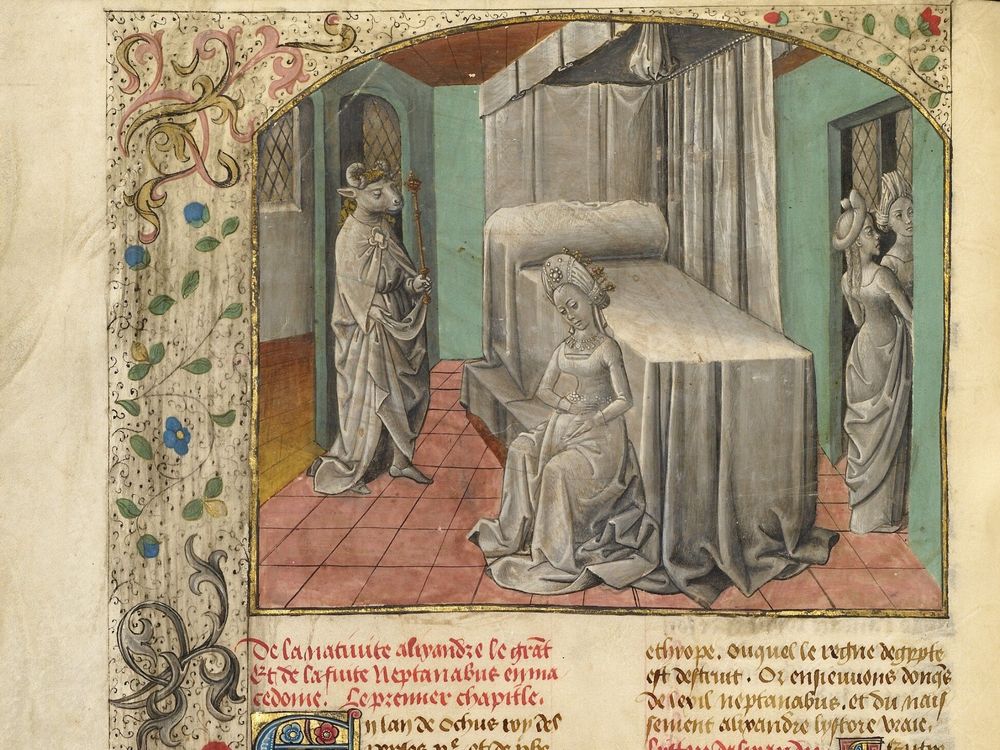 De la nativite alixandre le grãt
Et de la fuite Neptanabus en ma
cedome. Le premier chapitle.
En lan de Ochus roy des
ethiope. Ouquel le regne degypte
est destruit. Or ensieuvons doncqs
de levil neptanabus. et du nais
sement alixandre lystore vraie.